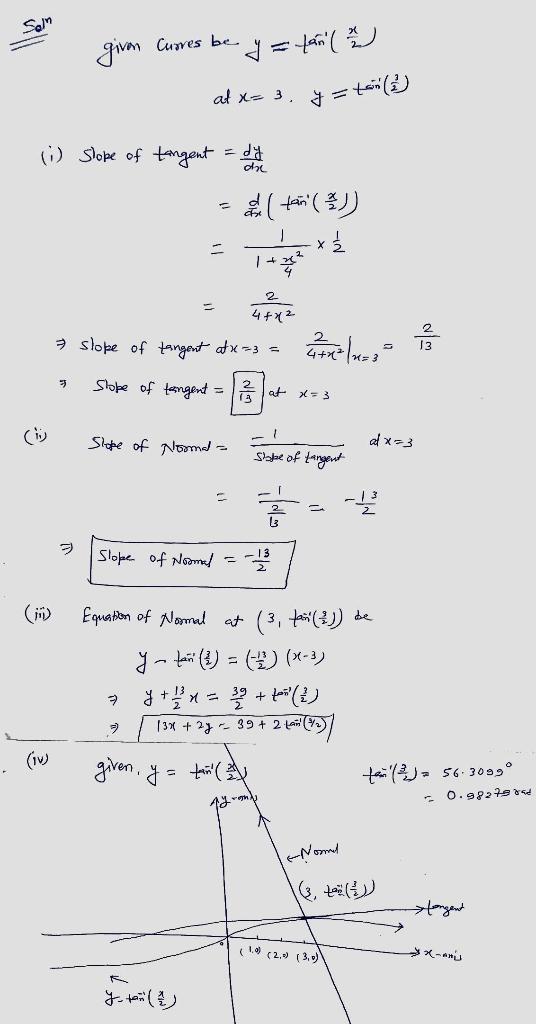 Soln
given Curves be y = tan⁻¹(x/2)
at x = 3. y = tan⁻¹(3/2)
(i) Slope of tangent = dy/dx
= d/dx ( tan⁻¹(x/2))
= 1/(1 + x²/4) × 1/2
= 2/(4+x²)
⇒ Slope of tangent at x=3 = 2/(4+x²)|x=3 = 2/13
⇒ Slope of tangent = 2/13 at x=3
(ii) Slope of Normal = -1/Slope of tangent at x=3
= -1/(2/13) = -13/2
⇒ Slope of Normal = -13/2
(iii) Equation of Normal at (3, tan⁻¹(3/2)) be
y - tan⁻¹(3/2) = (-13/2) (x-3)
⇒ y + 13/2 x = 39/2 + tan⁻¹(3/2)
⇒ 13x + 2y = 39 + 2 tan⁻¹(3/2)
(iv) given, y = tan⁻¹(x/2)
tan⁻¹(3/2) = 56.3099°
= 0.98279 rad
y-axis
←Normal
(3, tan⁻¹(3/2))
tangent
0 (1,0) (2,0) (3,0) x-axis
y = tan⁻¹(x/2)